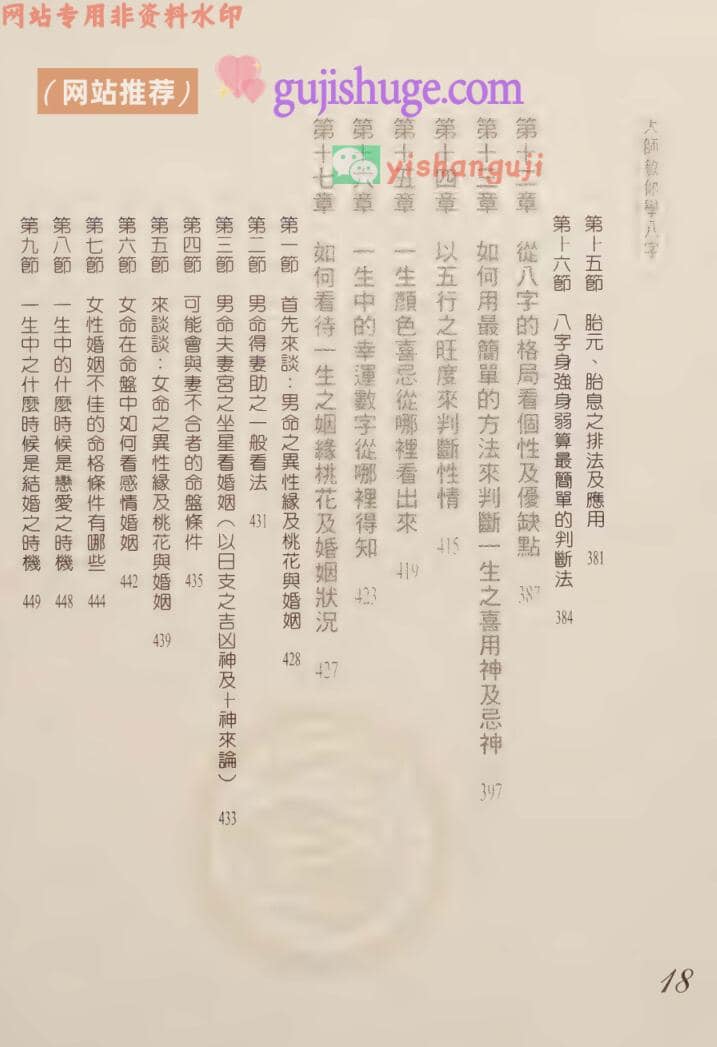 网站专用非资料水印
（网站推荐）
gujishuge.com
yishanguji
大師教你學八字
第十五節 胎元、胎息之排法及應用 381
第十六節 八字身強身弱算最簡單的判斷法 384
第十二章 從八字的格局看個性及優缺點 387
第十三章 如何用最簡單的方法來判斷一生之喜用神及忌神 397
第十四章 以五行之旺度來判斷性情 415
第十五章 一生顏色喜忌從哪裡看出來 419
第十六章 一生中的幸運數字從哪裡得知 423
第十七章 如何看待一生之姻緣桃花及婚姻狀況 427
第一節 首先來談：男命之異性緣及桃花與婚姻 428
第二節 男命得妻助之一般看法 431
第三節 男命夫妻宮之坐星看婚姻（以日支之吉凶神及十神來論） 433
第四節 可能會與妻不合者的命盤條件 435
第五節 來談談：女命之異性緣及桃花與婚姻 439
第六節 女命在命盤中如何看感情婚姻 442
第七節 女性婚姻不佳的命格條件有哪些 444
第八節 一生中的什麼時候是戀愛之時機 448
第九節 一生中之什麼時候是結婚之時機 449
18